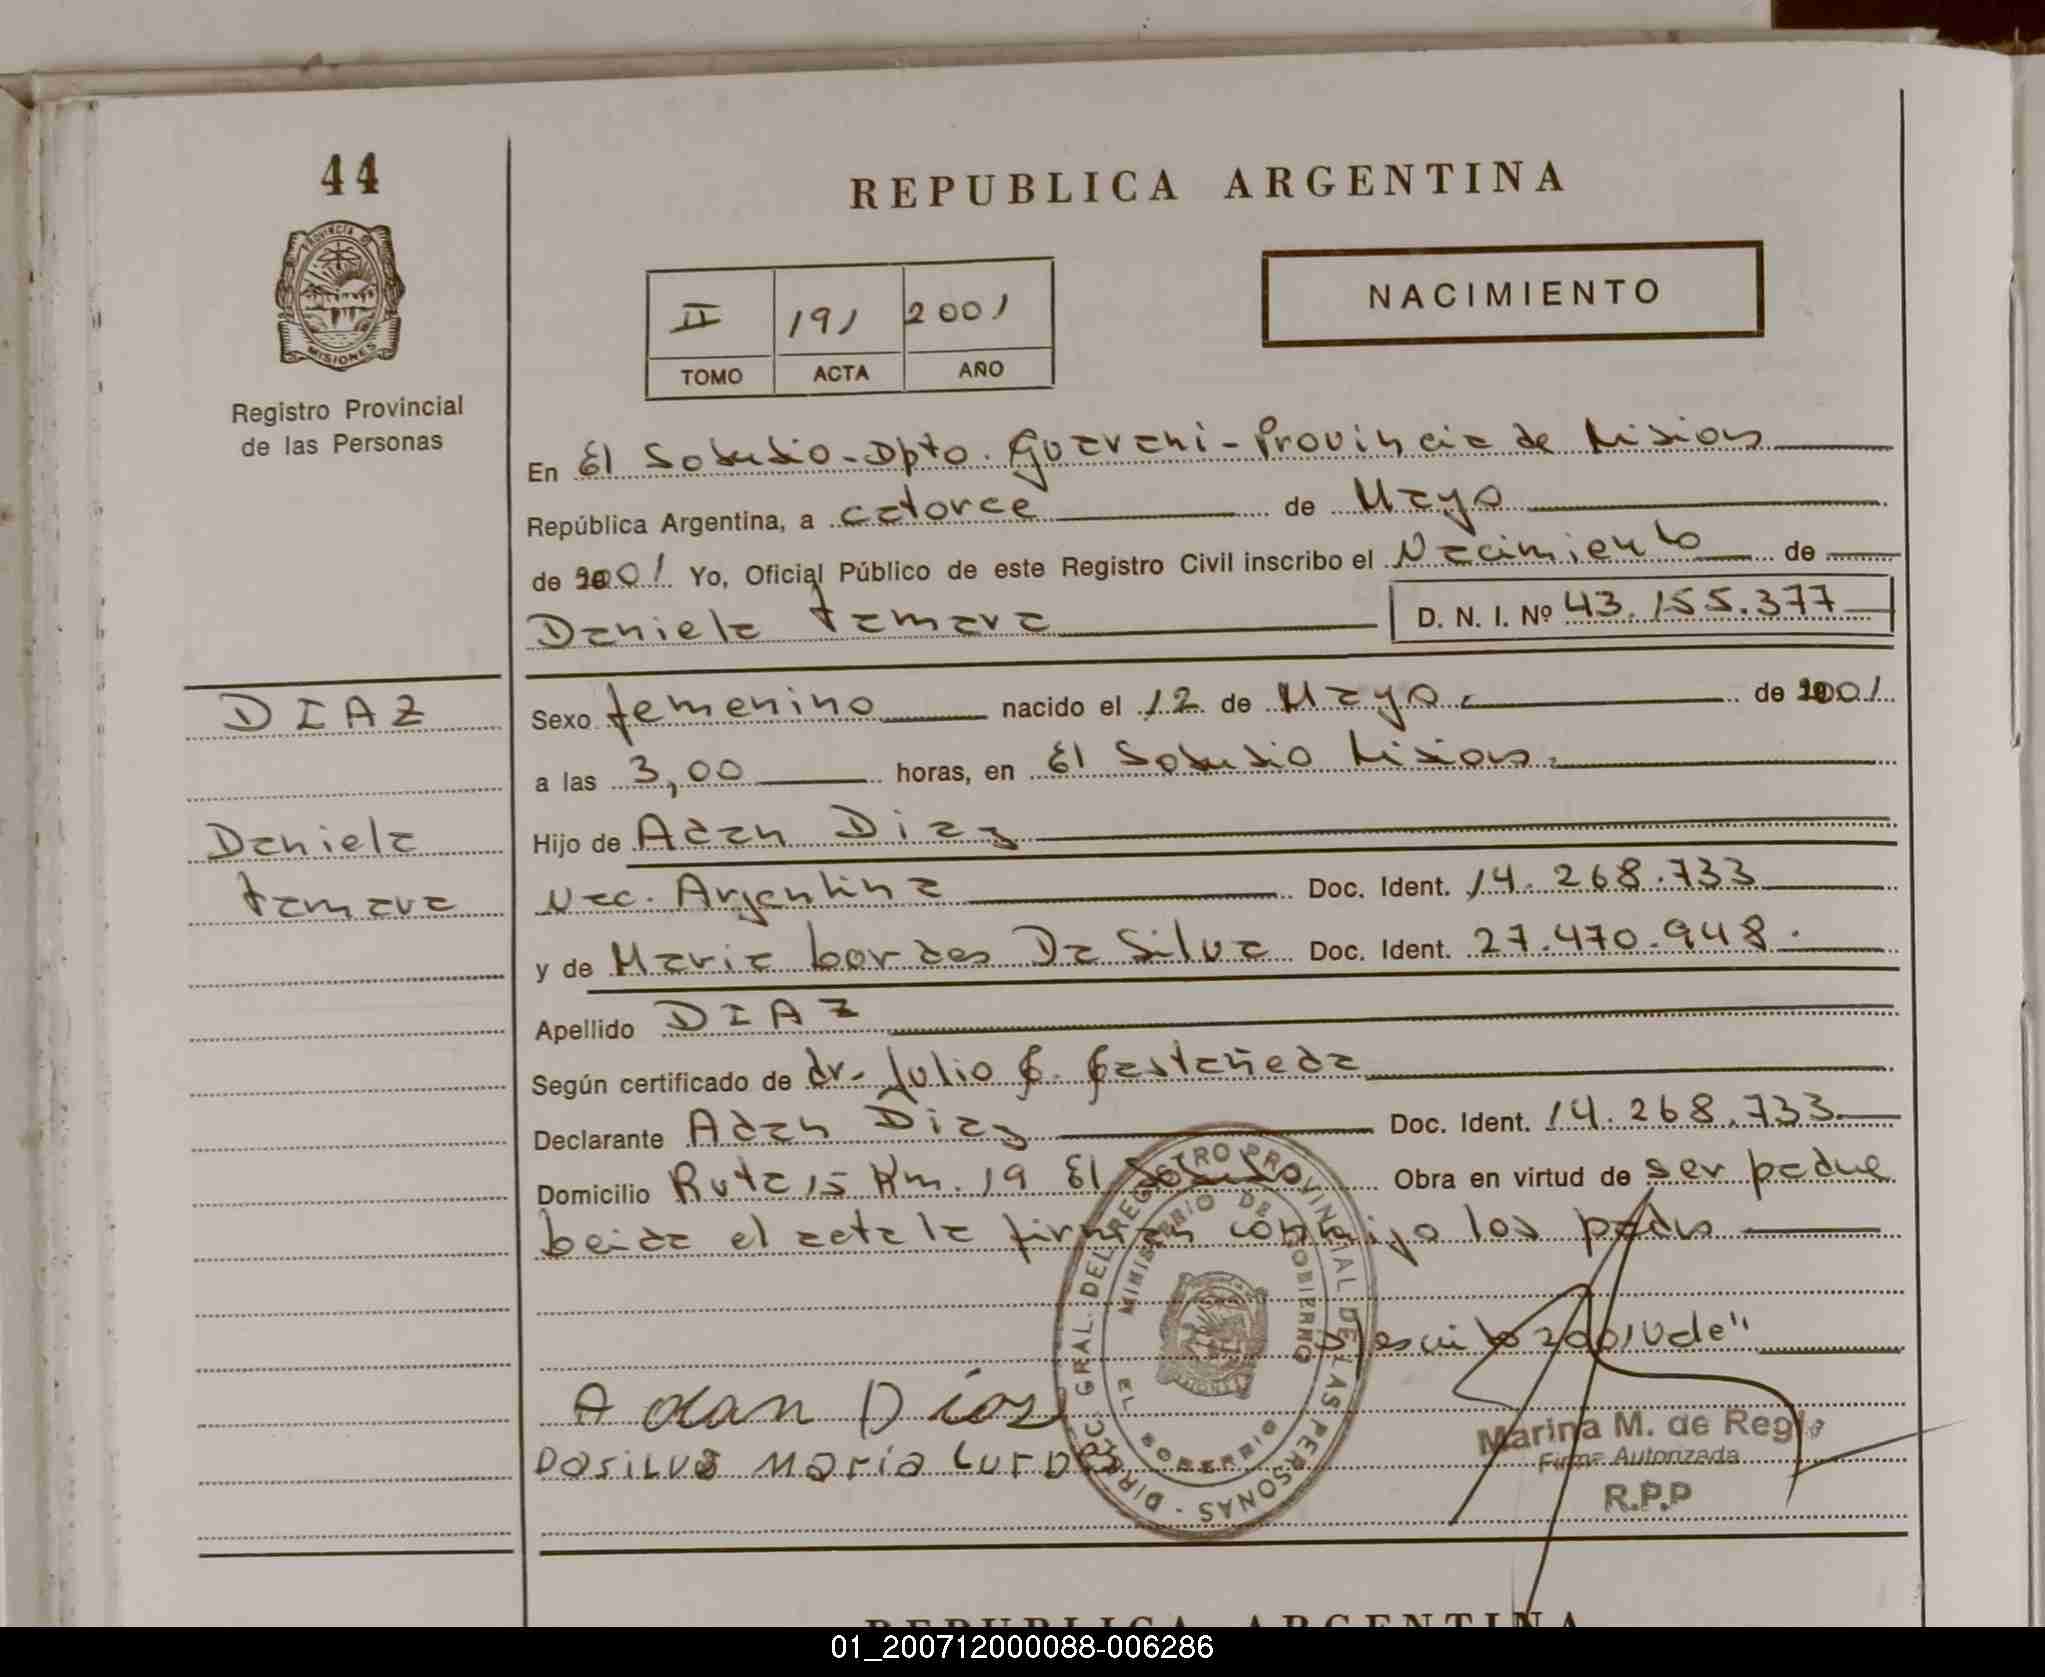 44
REPUBLICA ARGENTINA
PROVINCIA DE
MISIONES
Registro Provincial
de las Personas
II 191 2001
TOMO ACTA AÑO
NACIMIENTO
En El Soberbio - Dpto. Guarani - Provincia de Misiones
República Argentina, a catorce de Mayo
de 2001 Yo, Oficial Público de este Registro Civil inscribo el Nacimiento de
Daniela Tamara D. N. I. Nº 43.155.377
DIAZ
Sexo femenino nacido el 12 de Mayo de 2001
a las 3,00 horas, en El Soberbio Misiones
Daniela
Tamara
Hijo de Adan Diaz
Nac. Argentina Doc. Ident. 14.268.733
y de Maria Lordes Da Silva Doc. Ident. 27.470.948.
Apellido DIAZ
Según certificado de dr. Julio C. Castañeda
Declarante Adan Diaz Doc. Ident. 14.268.733
Domicilio Ruta 15 Km. 19 El Soberbio Obra en virtud de ser padre
Leida el acta la firman conmigo los padres
2001 Vale"
Adan Dias
Dasilva Maria Lurdes
DIRECC. GRAL. DEL REGISTRO PROVINCIAL DE LAS PERSONAS -
MINISTERIO DE GOBIERNO
EL SOBERBIO
Marina M. de Regis
Firma Autorizada
R.P.P
REPUBLICA ARGENTINA
01_200712000088-006286